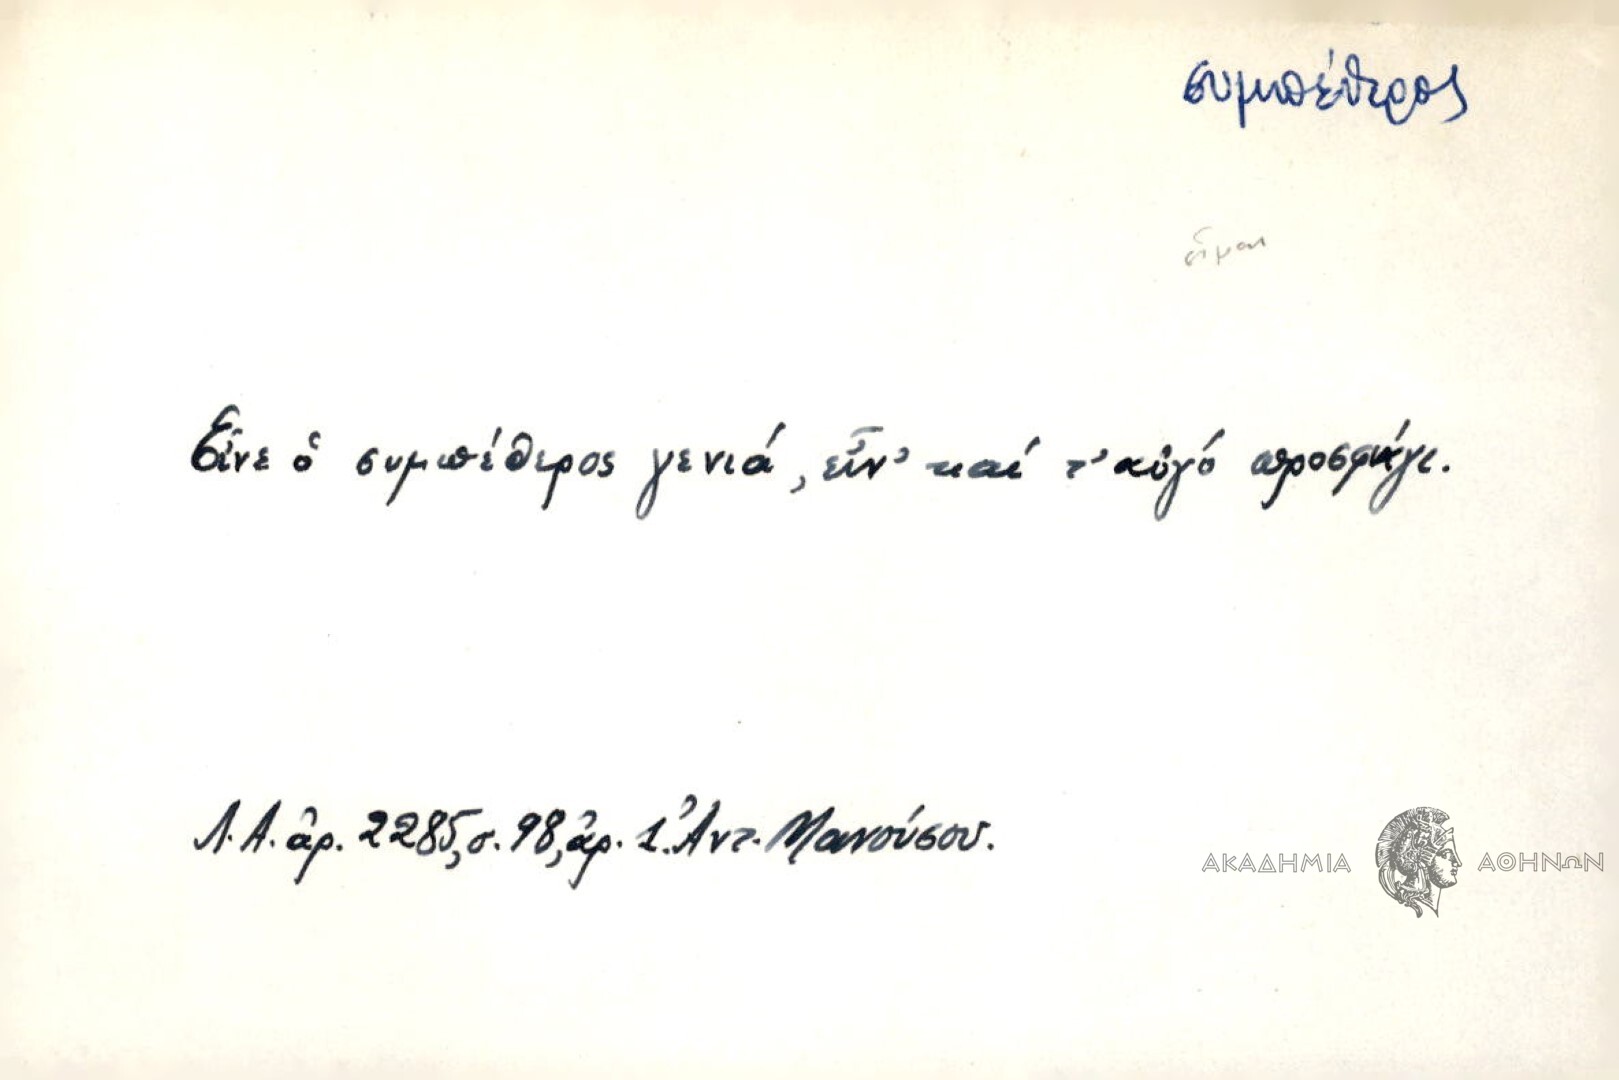 συμπέθερος
εἶμαι
Εἶνε ὁ συμπέθερος γενιά, εἶν' καί τ' αὐγό προσφάγι.
Λ.Α. ἀρ. 2285, σ. 98, ἀρ. 1. Ἀντ. Μανούσου.
ΑΚΑΔΗΜΙΑ ΑΘΗΝΩΝ